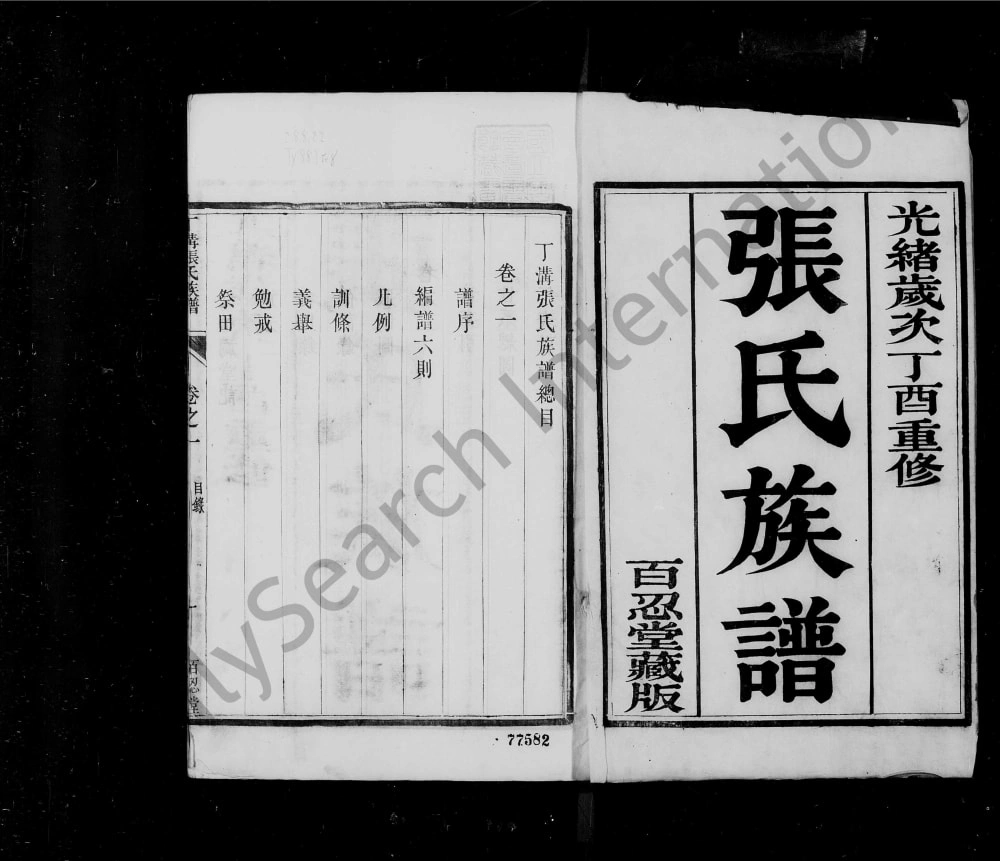 光緒歲次丁酉重修
張氏族譜
百忍堂藏版
丁溝張氏族譜總目
卷之一
譜序
編譜六則
凡例
訓條
義舉
勉戒
祭田
丁溝張氏族譜
卷之一
目錄
一
百忍堂
77582
lySearch Internation